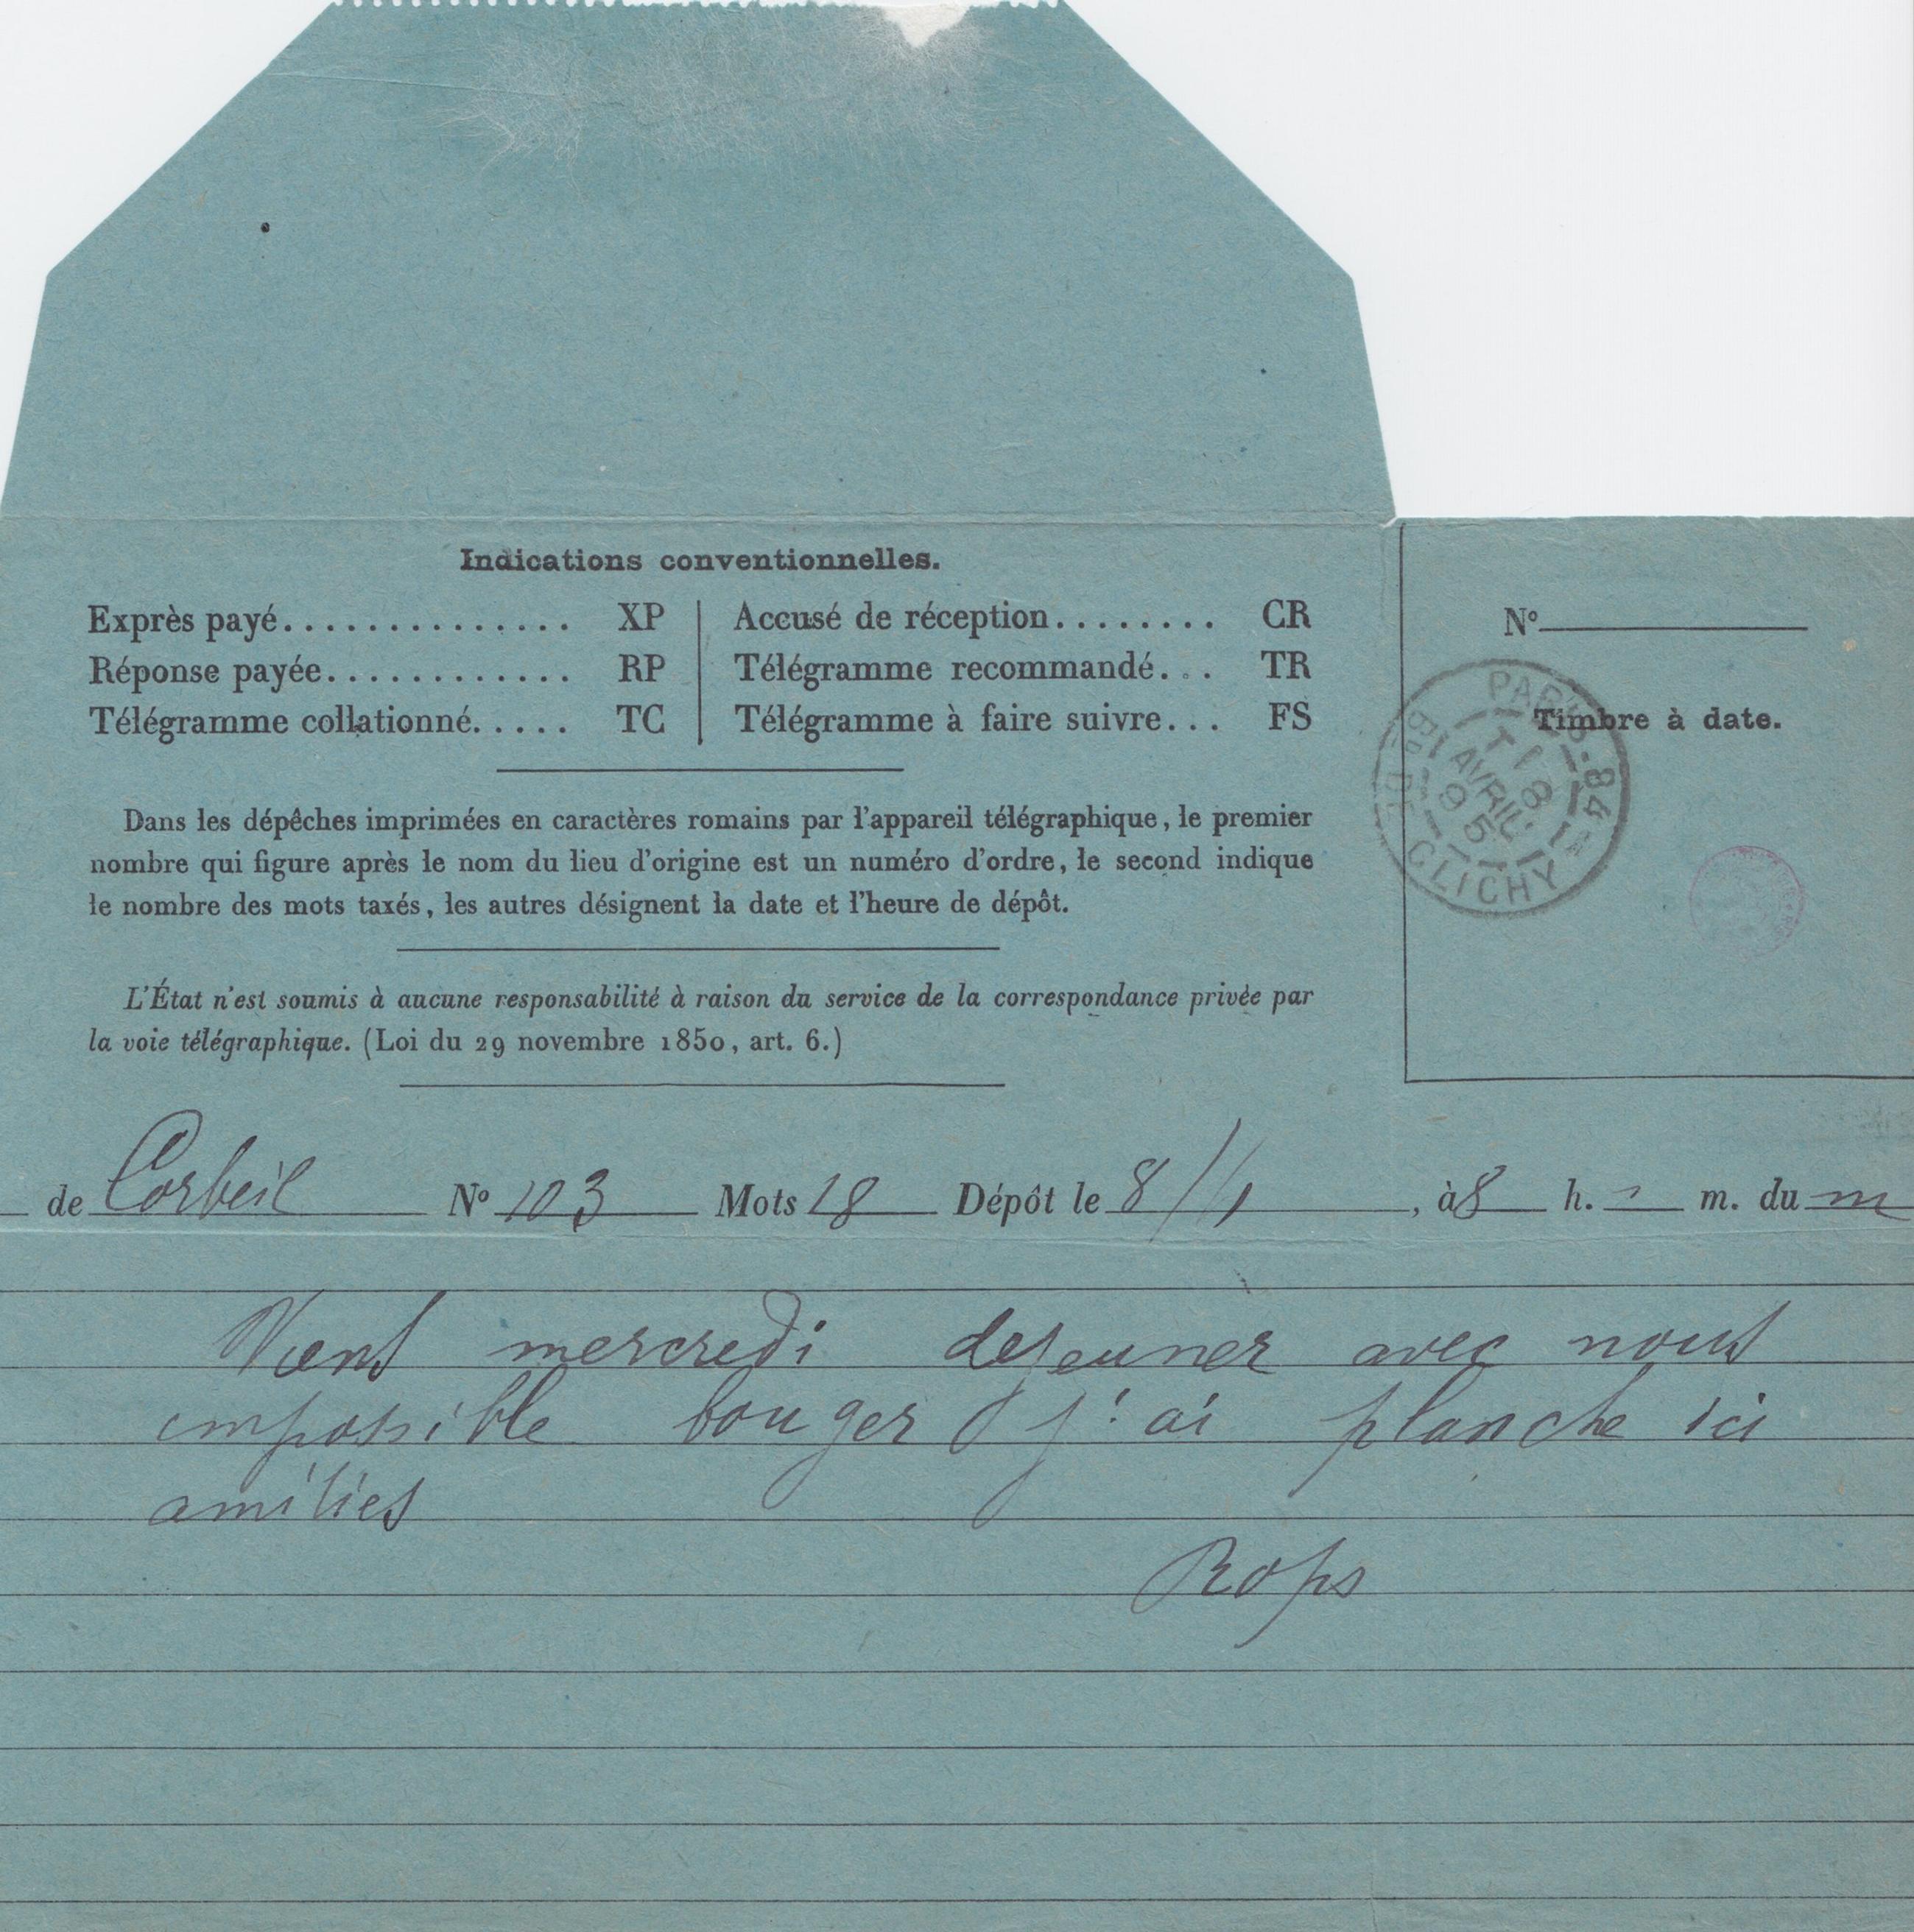 Indications conventionnelles.
Exprès payé.............. XP | Accusé de réception........ CR
Réponse payée............ RP | Télégramme recommandé... TR
Télégramme collationné..... TC | Télégramme à faire suivre... FS
N°
Timbre à date.
PARIS-84
Bd DE CLICHY
8
AVRIL
95
Dans les dépêches imprimées en caractères romains par l'appareil télégraphique, le premier
nombre qui figure après le nom du lieu d'origine est un numéro d'ordre, le second indique
le nombre des mots taxés, les autres désignent la date et l'heure de dépôt.
L'État n'est soumis à aucune responsabilité à raison du service de la correspondance privée par
la voie télégraphique. (Loi du 29 novembre 1850, art. 6.)
de Corbeil N° 103 Mots 18 Dépôt le 8/4, à 8 h. m. du m
Viens mercredi dejeuner avec nous
impossible bouger j'ai planche ici
amities
Rops